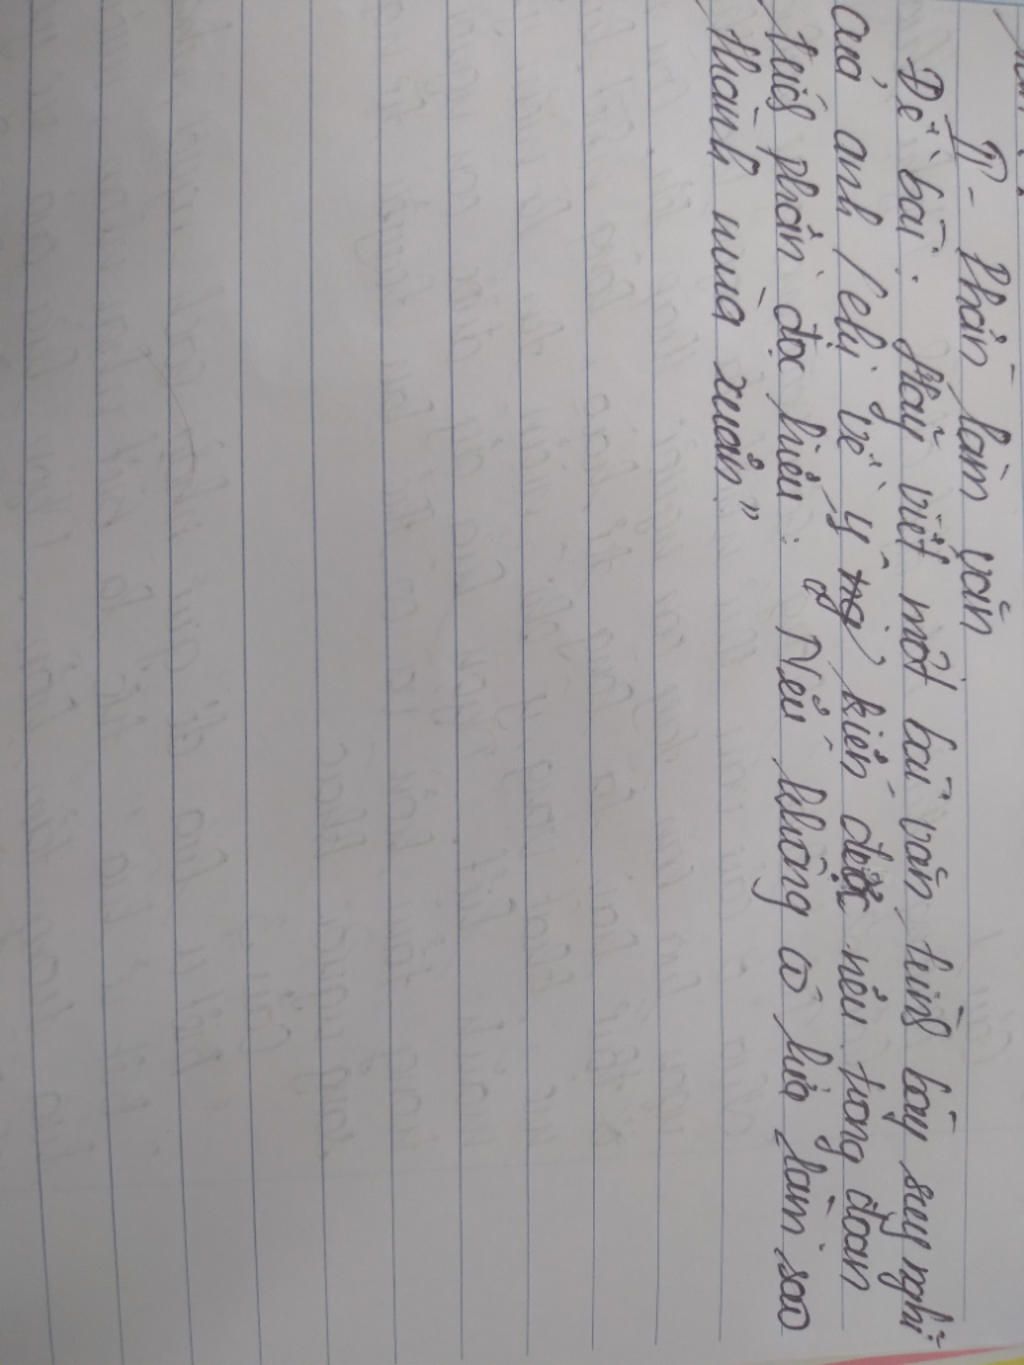 II - Phần làm văn
Đề bài: Hãy viết một bài văn trình bày suy nghĩ
của anh/chị về ý kiến được nêu trong đoạn
trích phần đọc hiểu: "Nếu không có lửa làm sao
thành mùa xuân"